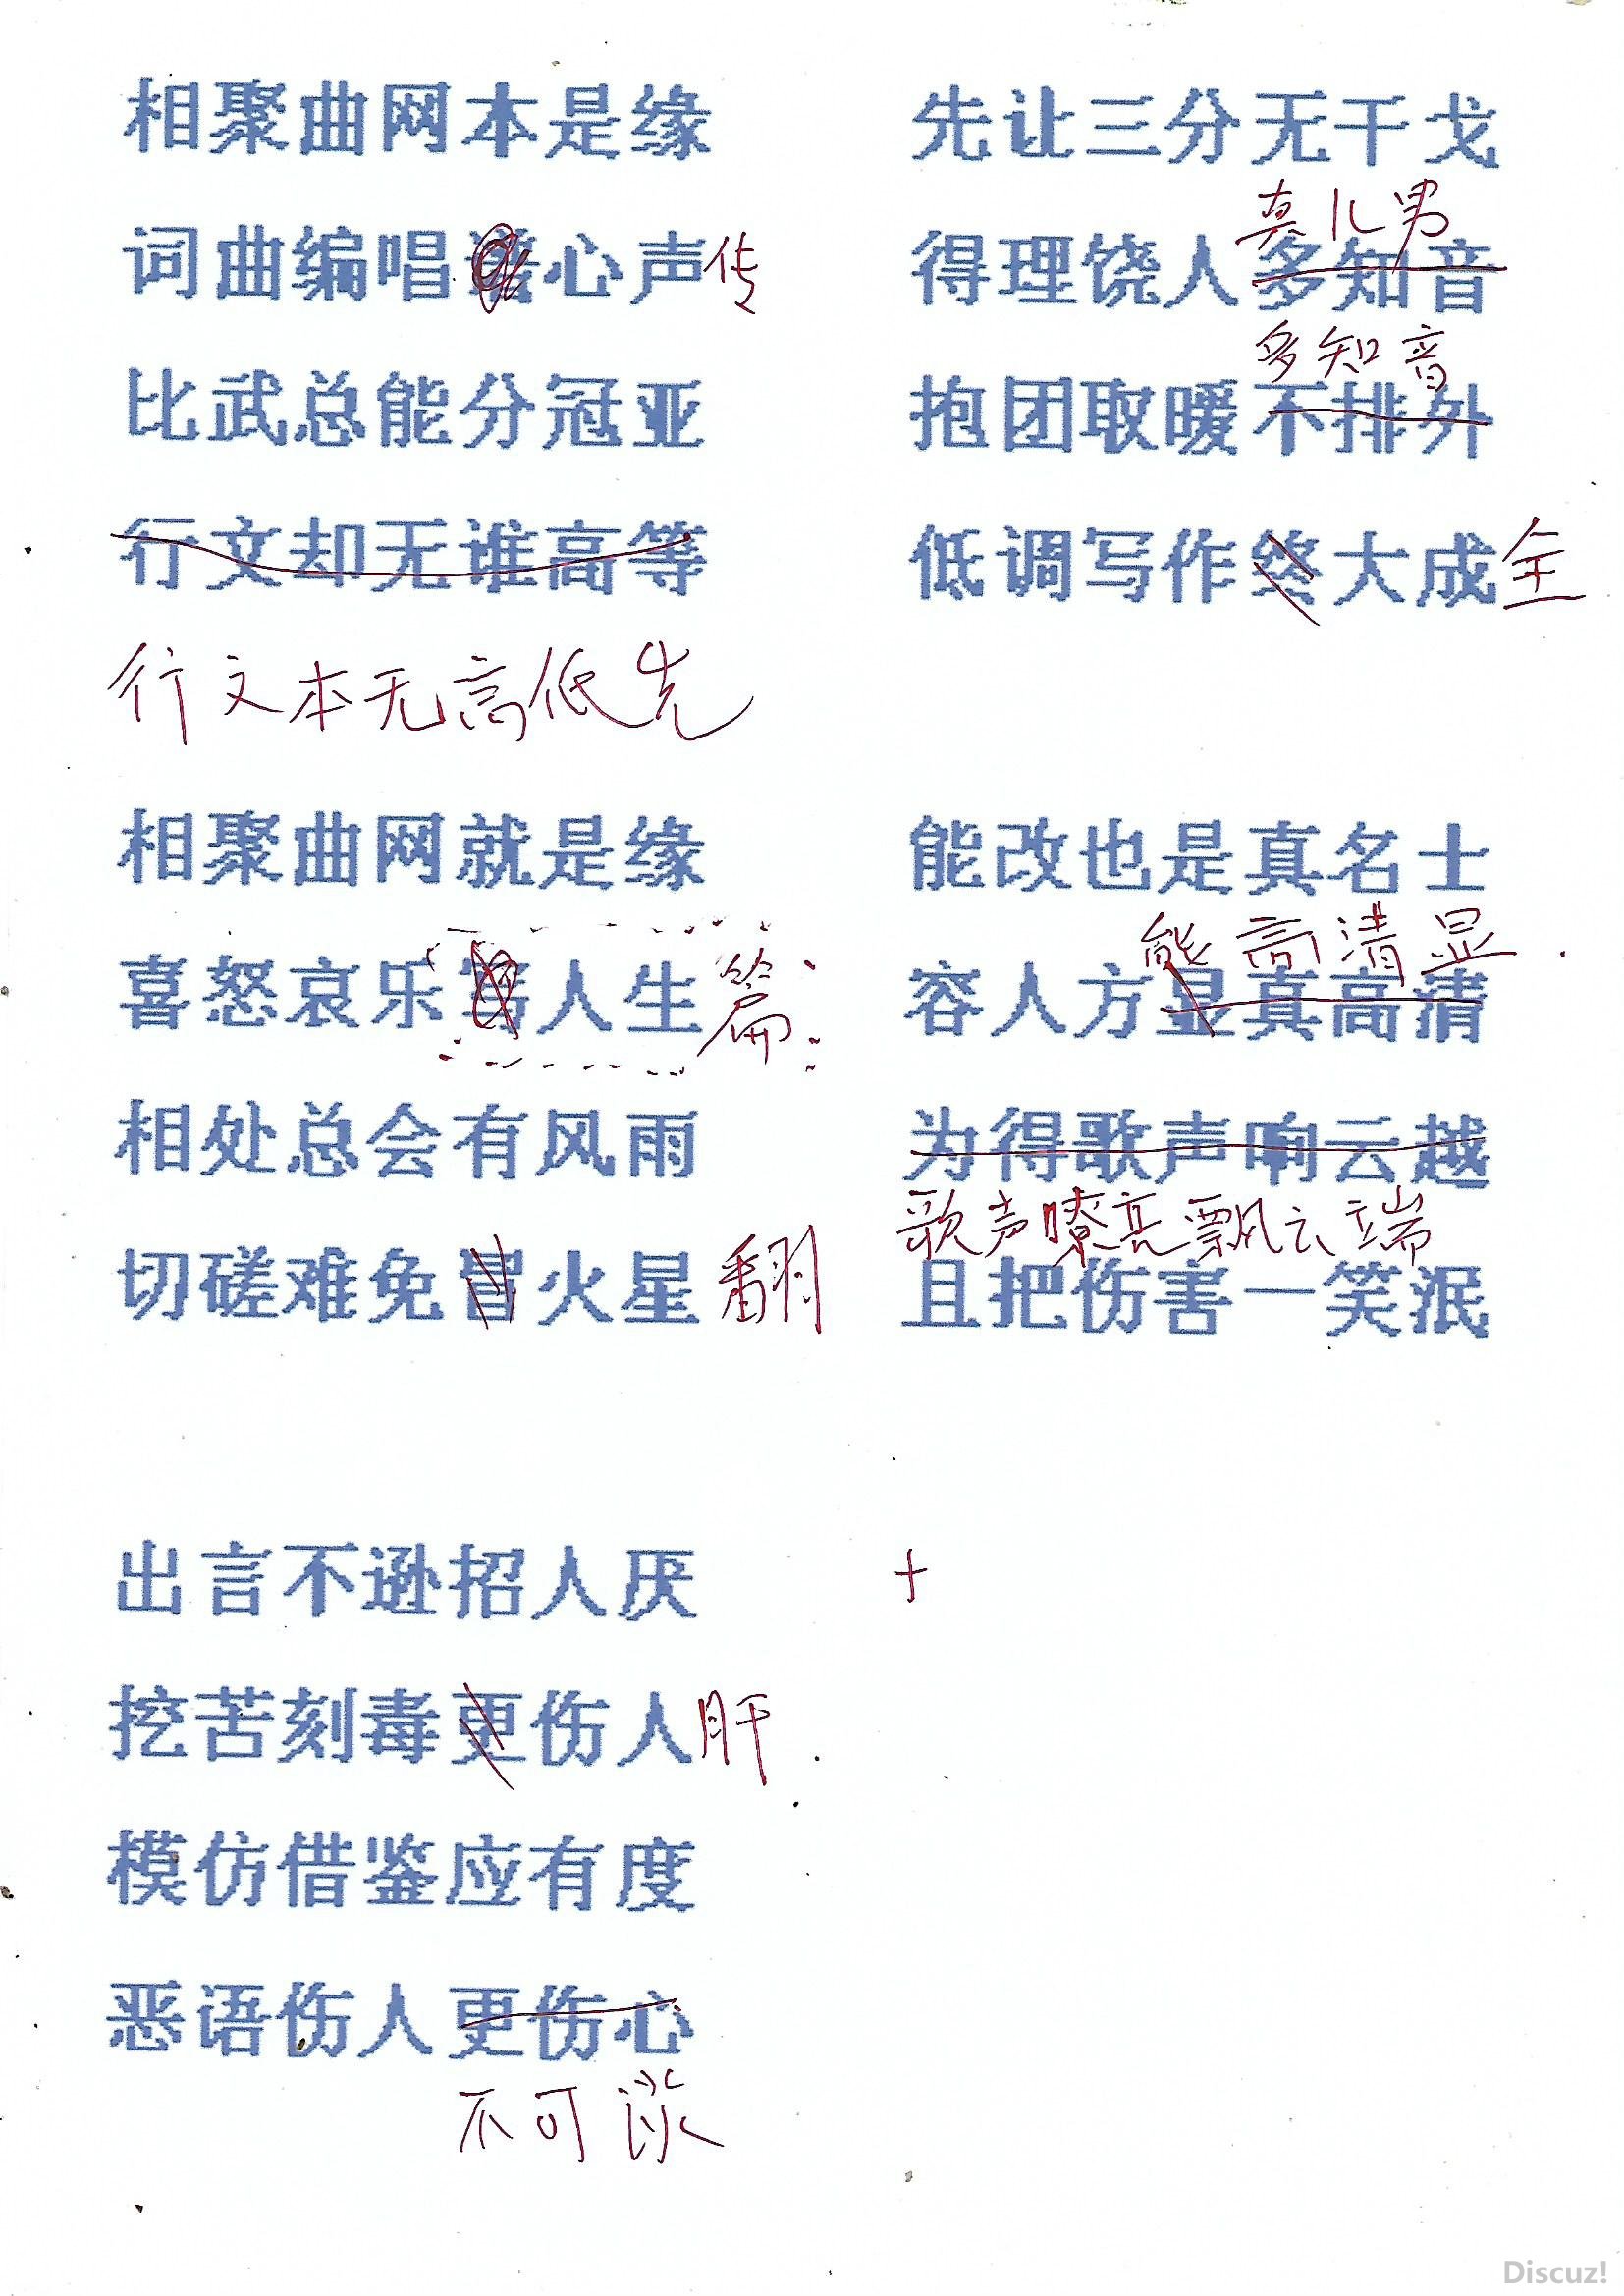 相聚曲网本是缘
词曲编唱谱心声传
比武总能分冠亚
行文却无谁高等
行文本无高低先
相聚曲网就是缘
喜怒哀乐写人生篇
相处总会有风雨
切磋难免冒火星翻
出言不逊招人厌
挖苦刻毒更伤人肝
模仿借鉴应有度
恶语伤人更伤心
不可谈
先让三分无干戈
真儿男
得理饶人多知音
多知音
抱团取暖不排外
低调写作终大成全
能改也是真名士
能高清显
容人方显真高清
为得歌声响云越
歌声嘹亮飘云端
且把伤害一笑泯
+
Discuz!